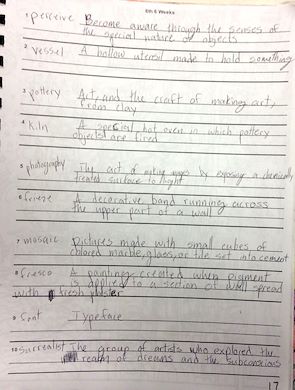 6th 6 Weeks
1 perceive Become aware through the senses of
the special nature of objects
2 vessel A hollow utensil made to hold something
3 pottery Art, and the craft of making art,
from clay
4 kiln A special hot oven in which pottery
objects are fired
5 photography The art of making images by exposing a chemically
treated surface to light
6 frieze A decorative band running across
the upper part of a wall
7 mosaic Pictures made with small cubes of
colored marble, glass, or tile set into cement
8 fresco A painting created when pigment
is applied to a section of wall spread
with fresh plaster
9 font Typeface
10 surrealist The group of artists who explored the
realm of dreams and the subconscious
17